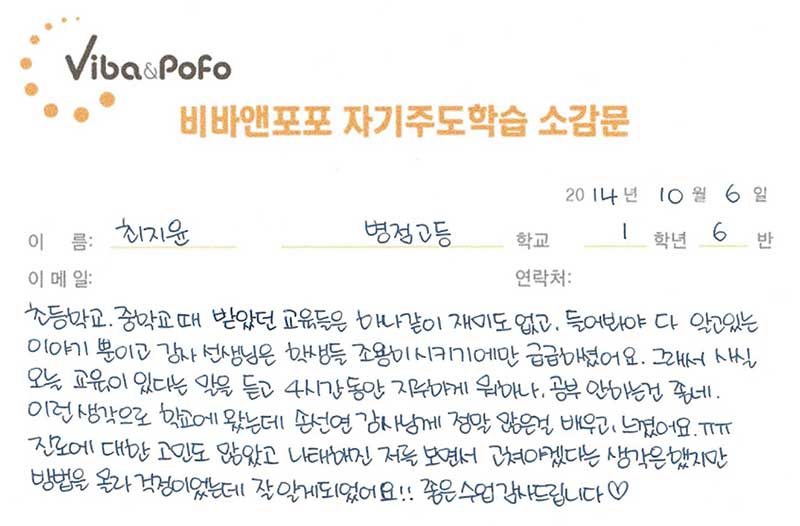 Viba&PoFo
비바앤포포 자기주도학습 소감문
2014년 10월 6일
이 름: 최지윤 병점고등 학교 1 학년 6 반
이메일: 연락처:
초등학교, 중학교 때 받았던 교육들은 하나같이 재미도 없고, 들어봐야 다 알고있는
이야기 뿐이고 강사 선생님은 학생들 조용히 시키기에만 급급하셨어요. 그래서 사실
오늘 교육이 있다는 말을 듣고 4시간동안 지루하게 뭐하나, 공부 안하는건 좋네.
이런 생각으로 학교에 왔는데 손선연 강사님께 정말 많은걸 배우고, 느꼈어요.ㅠㅠ
진로에 대한 고민도 많았고 나태해진 저를 보면서 고쳐야겠다는 생각은했지만
방법을 몰라 걱정이었는데 잘 알게되었어요!! 좋은수업 감사드립니다♡